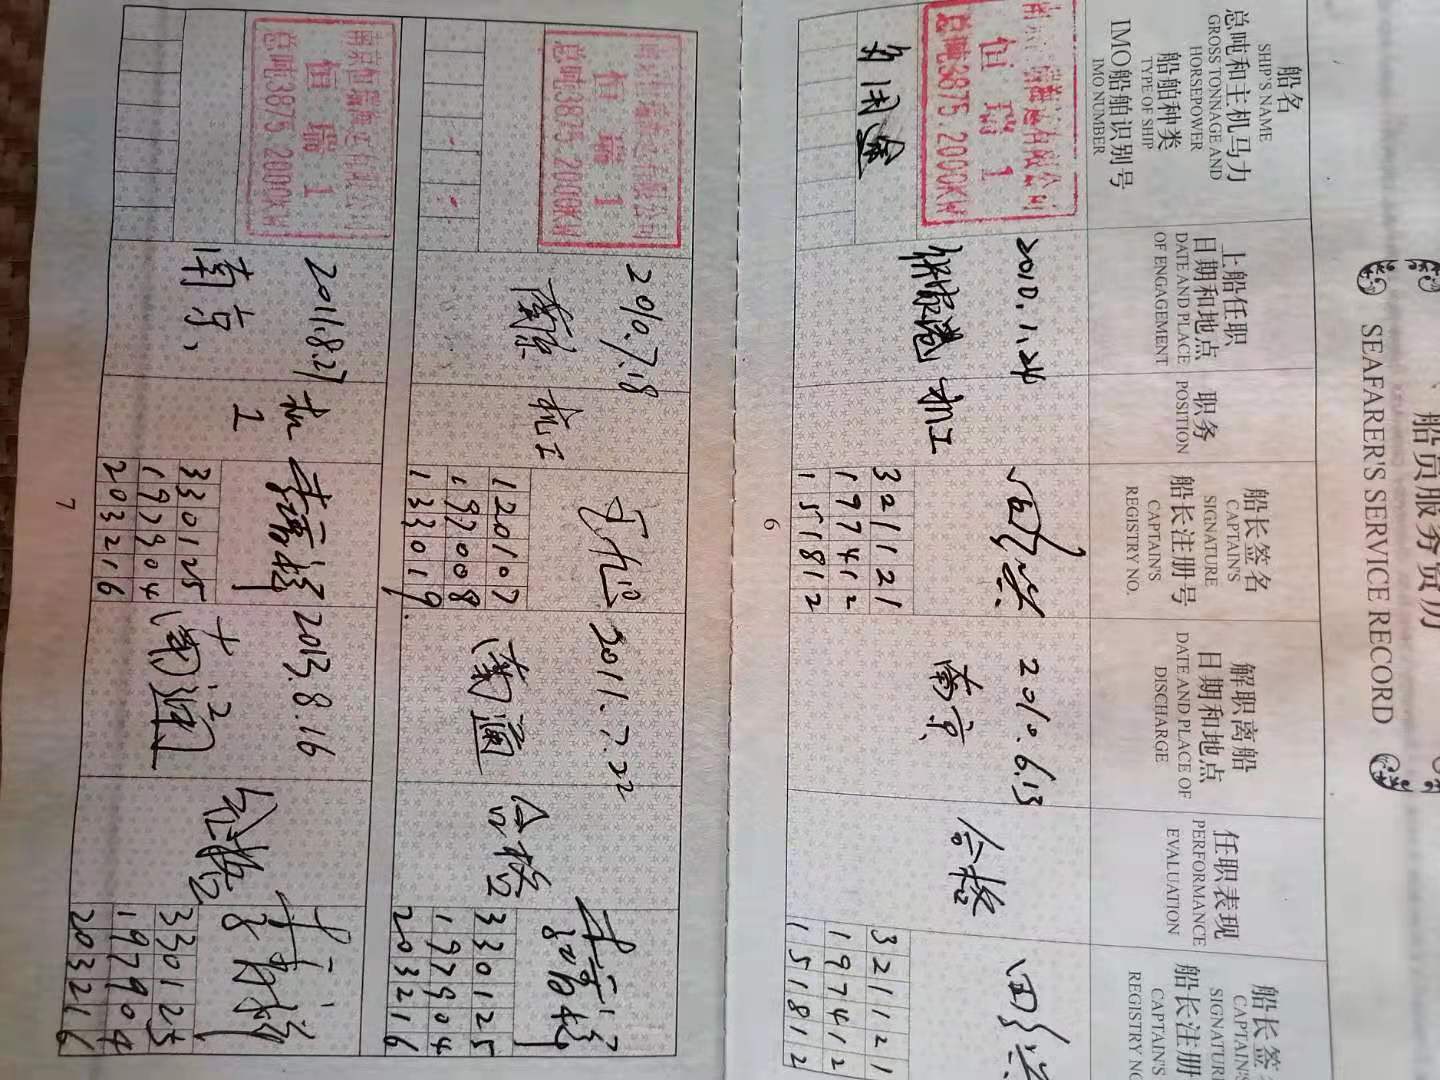 船员服务资历
SEAFARER'S SERVICE RECORD
船名
SHIP'S NAME
总吨和主机马力
GROSS TONNAGE AND
HORSEPOWER
船舶种类
TYPE OF SHIP
IMO船舶识别号
IMO NUMBER
上船任职
日期和地点
DATE AND PLACE
OF ENGAGEMENT
职务
POSITION
船长签名
CAPTAIN'S
SIGNATURE
船长注册号
CAPTAIN'S
REGISTRY NO.
解职离船
日期和地点
DATE AND PLACE OF
DISCHARGE
任职表现
PERFORMANCE
EVALUATION
船长签
CAPTAIN'S
SIGNATUR
船长注册
CAPTAIN'S
REGISTRY NO
恒瑞1
总吨3875 2000KW
多用途
2010.1.24
机工
321121
197412
151812
2010.6.13
南京
合格
321121
197412
151812
6
恒瑞1
总吨3875 2000KW
2010.7.18
南京
机工
120107
197008
133019
2011.7.22
南通
合格
330125
197904
203216
南京恒瑞海运有限公司
恒瑞1
总吨3875 2000KW
2011.8.27
南京
机工
330125
197904
203216
2013.8.16
南通
合格
330125
197904
203216
7